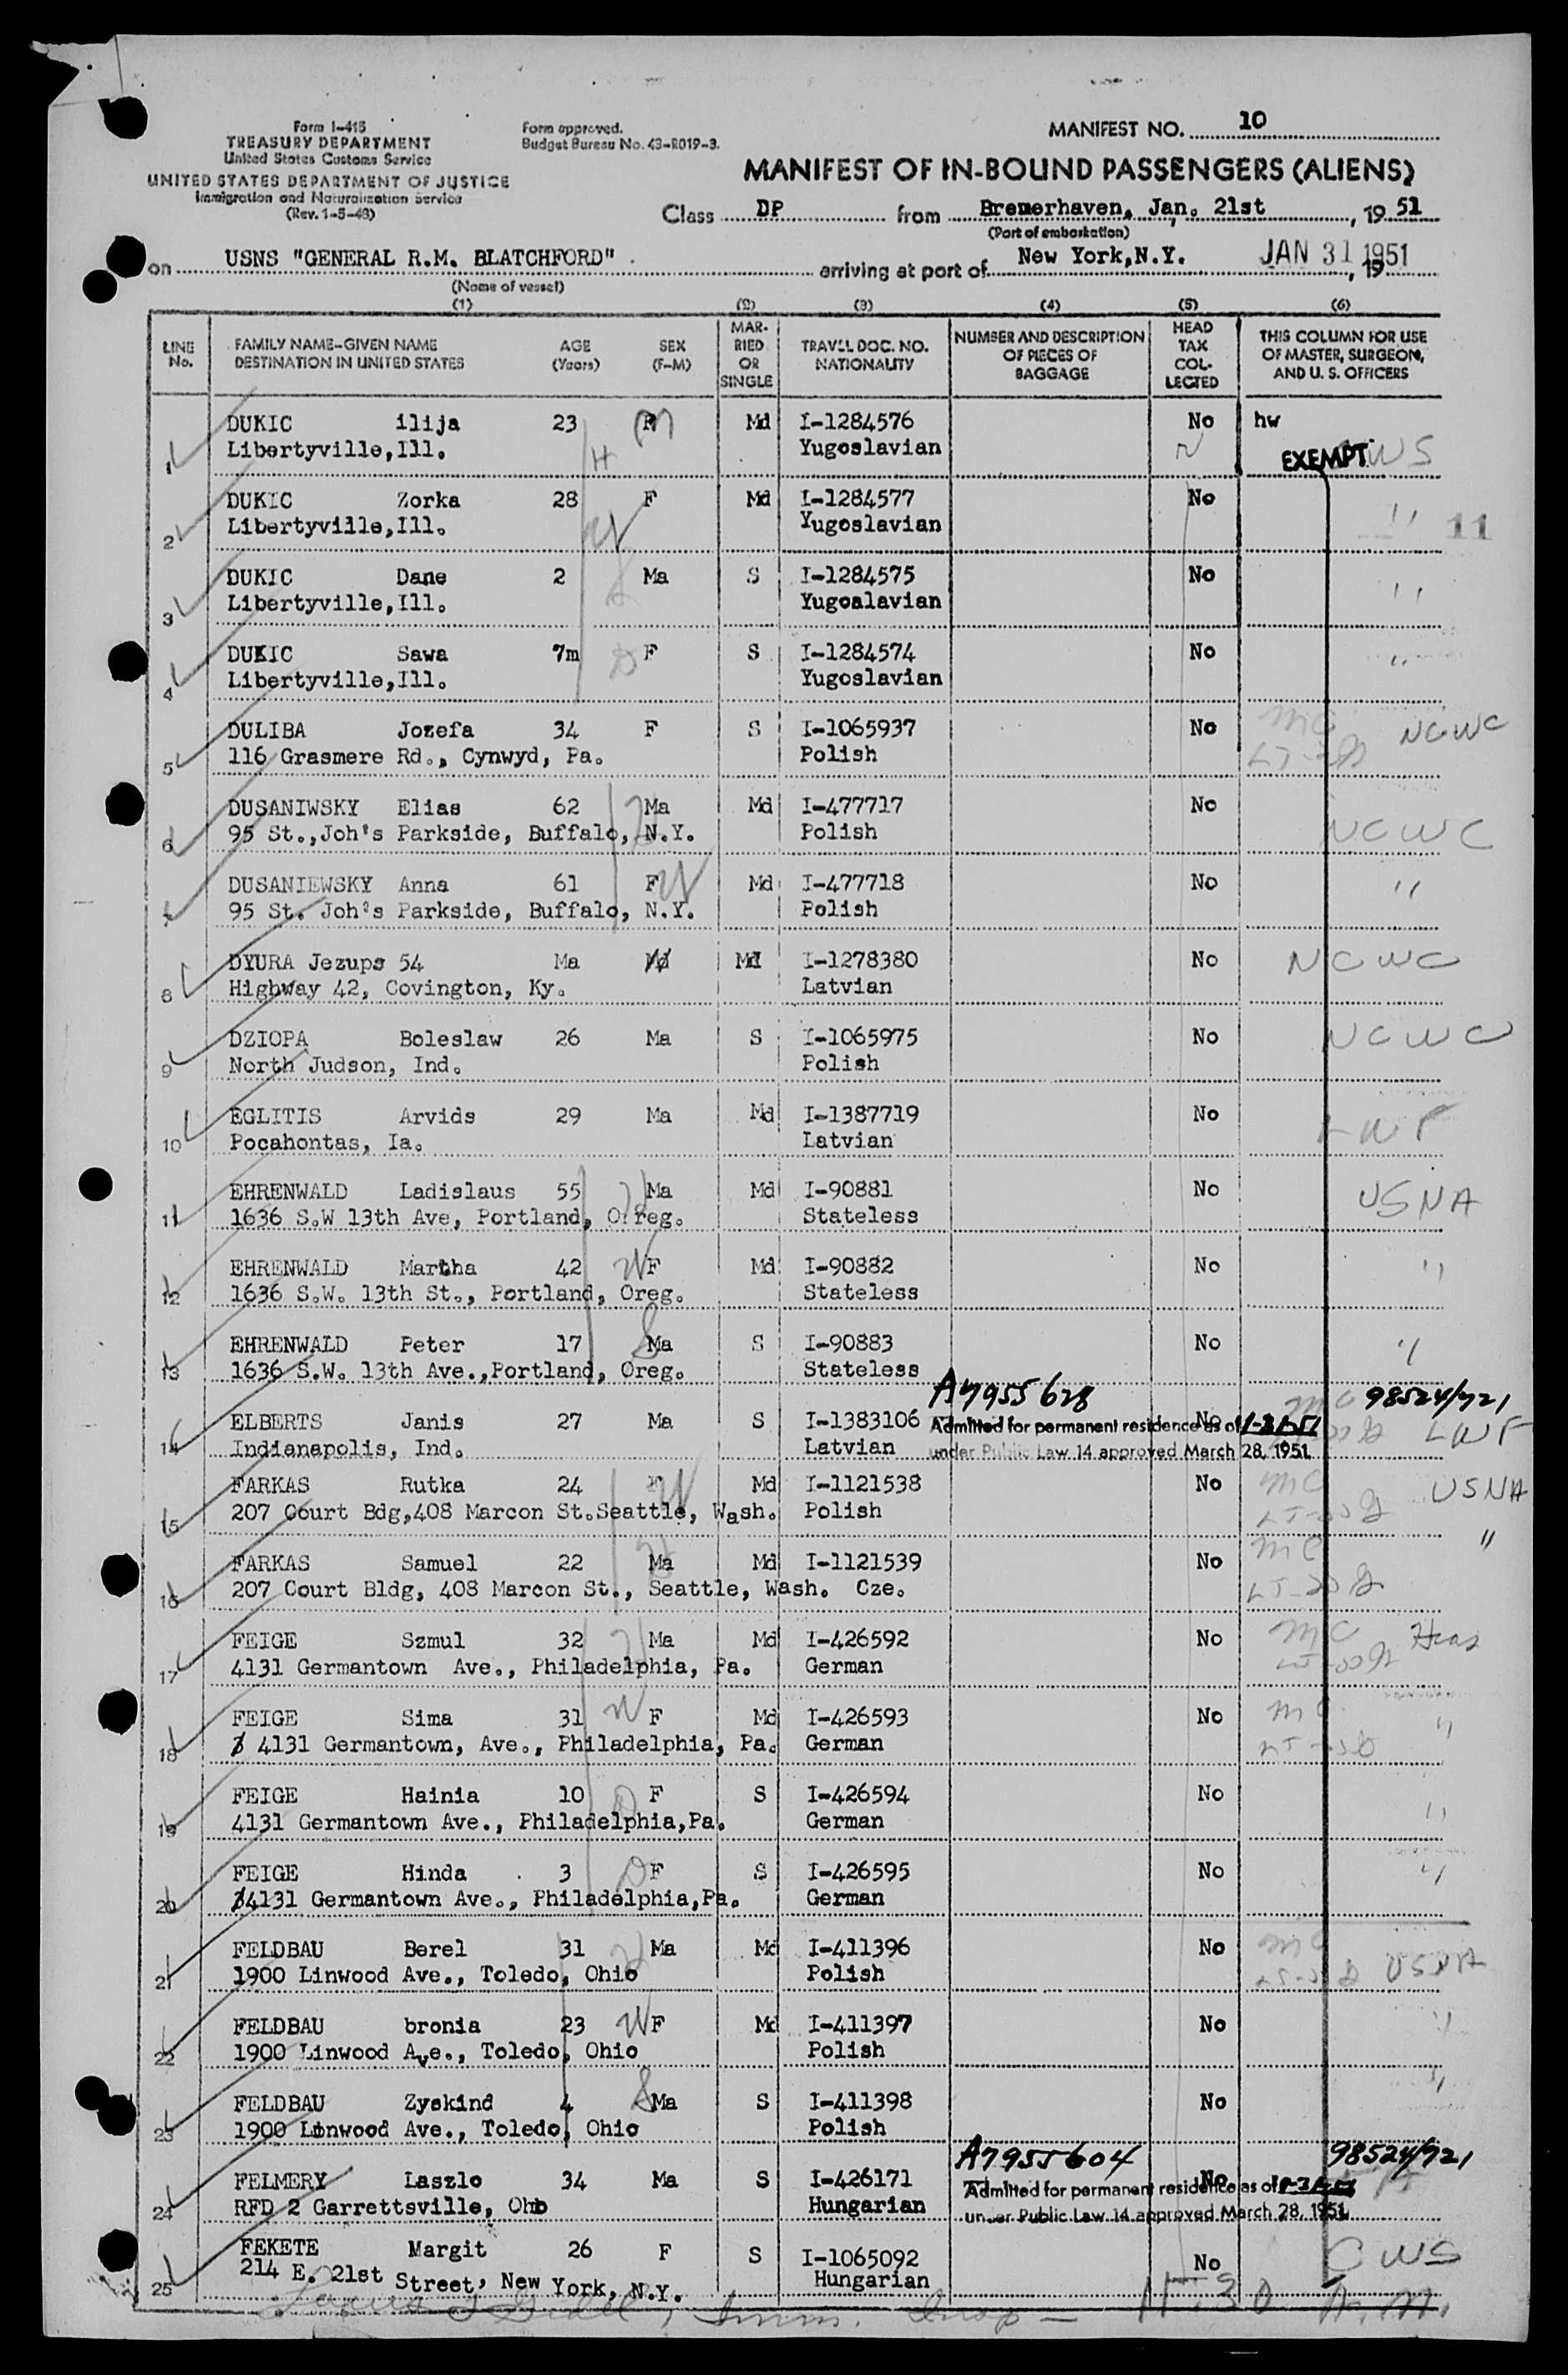 Form I-415
TREASURY DEPARTMENT
United States Customs Service
UNITED STATES DEPARTMENT OF JUSTICE
Immigration and Naturalization Service
(Rev. 1-5-48)
Form approved.
Budget Bureau No. 43-R019-3.
MANIFEST NO. 10
MANIFEST OF IN-BOUND PASSENGERS (ALIENS)
Class DP from Bremerhaven, Jan. 21st, 19 51
(Port of embarkation)
on USNS "GENERAL R.M. BLATCHFORD" arriving at port of New York,N.Y. JAN 31 1951, 19
(Name of vessel)
(1) (2) (3) (4) (5) (6)
LINE No. FAMILY NAME-GIVEN NAME DESTINATION IN UNITED STATES AGE (Years) SEX (F-M) MARRIED OR SINGLE TRAVEL DOC. NO. NATIONALITY NUMBER AND DESCRIPTION OF PIECES OF BAGGAGE HEAD TAX COLLECTED THIS COLUMN FOR USE OF MASTER, SURGEON, AND U. S. OFFICERS
DUKIC ilija 23 M Md I-1284576 No hw
1 Libertyville,Ill. H Yugoslavian N EXEMPT CWS
DUKIC Zorka 28 F Md I-1284577 No
2 Libertyville,Ill. W Yugoslavian " 11
DUKIC Dane 2 Ma S I-1284575 No
3 Libertyville,Ill. S Yugoalavian "
DUKIC Sawa 7m D F S I-1284574 No
4 Libertyville,Ill. Yugoslavian "
DULIBA Jozefa 34 F S I-1065937 No MC NCWC
5 116 Grasmere Rd., Cynwyd, Pa. Polish
DUSANIWSKY Elias 62 H Ma Md I-477717 No
6 95 St.,Joh's Parkside, Buffalo, N.Y. Polish NCWC
DUSANIEWSKY Anna 61 F W Md I-477718 No "
7 95 St. Joh's Parkside, Buffalo, N.Y. Polish
DYURA Jezups 54 Ma Md Md I-1278380 No NCWC
8 Highway 42, Covington, Ky. Latvian
DZIOPA Boleslaw 26 Ma S I-1065975 No NCWC
9 North Judson, Ind. Polish
EGLITIS Arvids 29 Ma Md I-1387719 No LWF
10 Pocahontas, Ia. Latvian
EHRENWALD Ladislaus 55 H Ma Md I-90881 No USNA
11 1636 S.W 13th Ave, Portland, O.reg. Stateless
EHRENWALD Martha 42 W F Md I-90882 No "
12 1636 S.W. 13th St., Portland, Oreg. Stateless
EHRENWALD Peter 17 S Ma S I-90883 No "
13 1636 S.W. 13th Ave.,Portland, Oreg. Stateless
A7955628 98524/721
ELBERTS Janis 27 Ma S I-1383106 No Admitted for permanent residence as of 1-31-51 MC LWF
14 Indianapolis, Ind. Latvian under Public Law 14 approved March 28, 1951.
FARKAS Rutka 24 W Md I-1121538 No MC USNA
15 207 Court Bdg,408 Marcon St.Seattle, Wash. Polish
FARKAS Samuel 22 H Ma Md I-1121539 No MC "
16 207 Court Bldg, 408 Marcon St., Seattle, Wash. Cze.
FEIGE Szmul 32 H Ma Md I-426592 No MC Hias
17 4131 Germantown Ave., Philadelphia, Pa. German
FEIGE Sima 31 W F Md I-426593 No MC "
18 4131 Germantown, Ave., Philadelphia, Pa. German
FEIGE Hainia 10 D F S I-426594 No
19 4131 Germantown Ave., Philadelphia,Pa. German "
FEIGE Hinda 3 D F S I-426595 No "
20 4131 Germantown Ave., Philadelphia,Pa. German
FELDBAU Berel 31 H Ma Md I-411396 No MC USNA
21 1900 Linwood Ave., Toledo, Ohio Polish
FELDBAU bronia 23 W F Md I-411397 No "
22 1900 Linwood Ave., Toledo, Ohio Polish
FELDBAU Zyskind 4 S Ma S I-411398 No "
23 1900 Linwood Ave., Toledo, Ohio Polish
A7955604 98524/721
FELMERY Laszlo 34 Ma S I-426171 No Admitted for permanent residence as of 1-31-51
24 RFD 2 Garrettsville, Ohio Hungarian under Public Law 14 approved March 28, 1951.
FEKETE Margit 26 F S I-1065092 No CWS
25 214 E. 21st Street, New York, N.Y. Hungarian
Imm. Insp - 11:30 A.M.